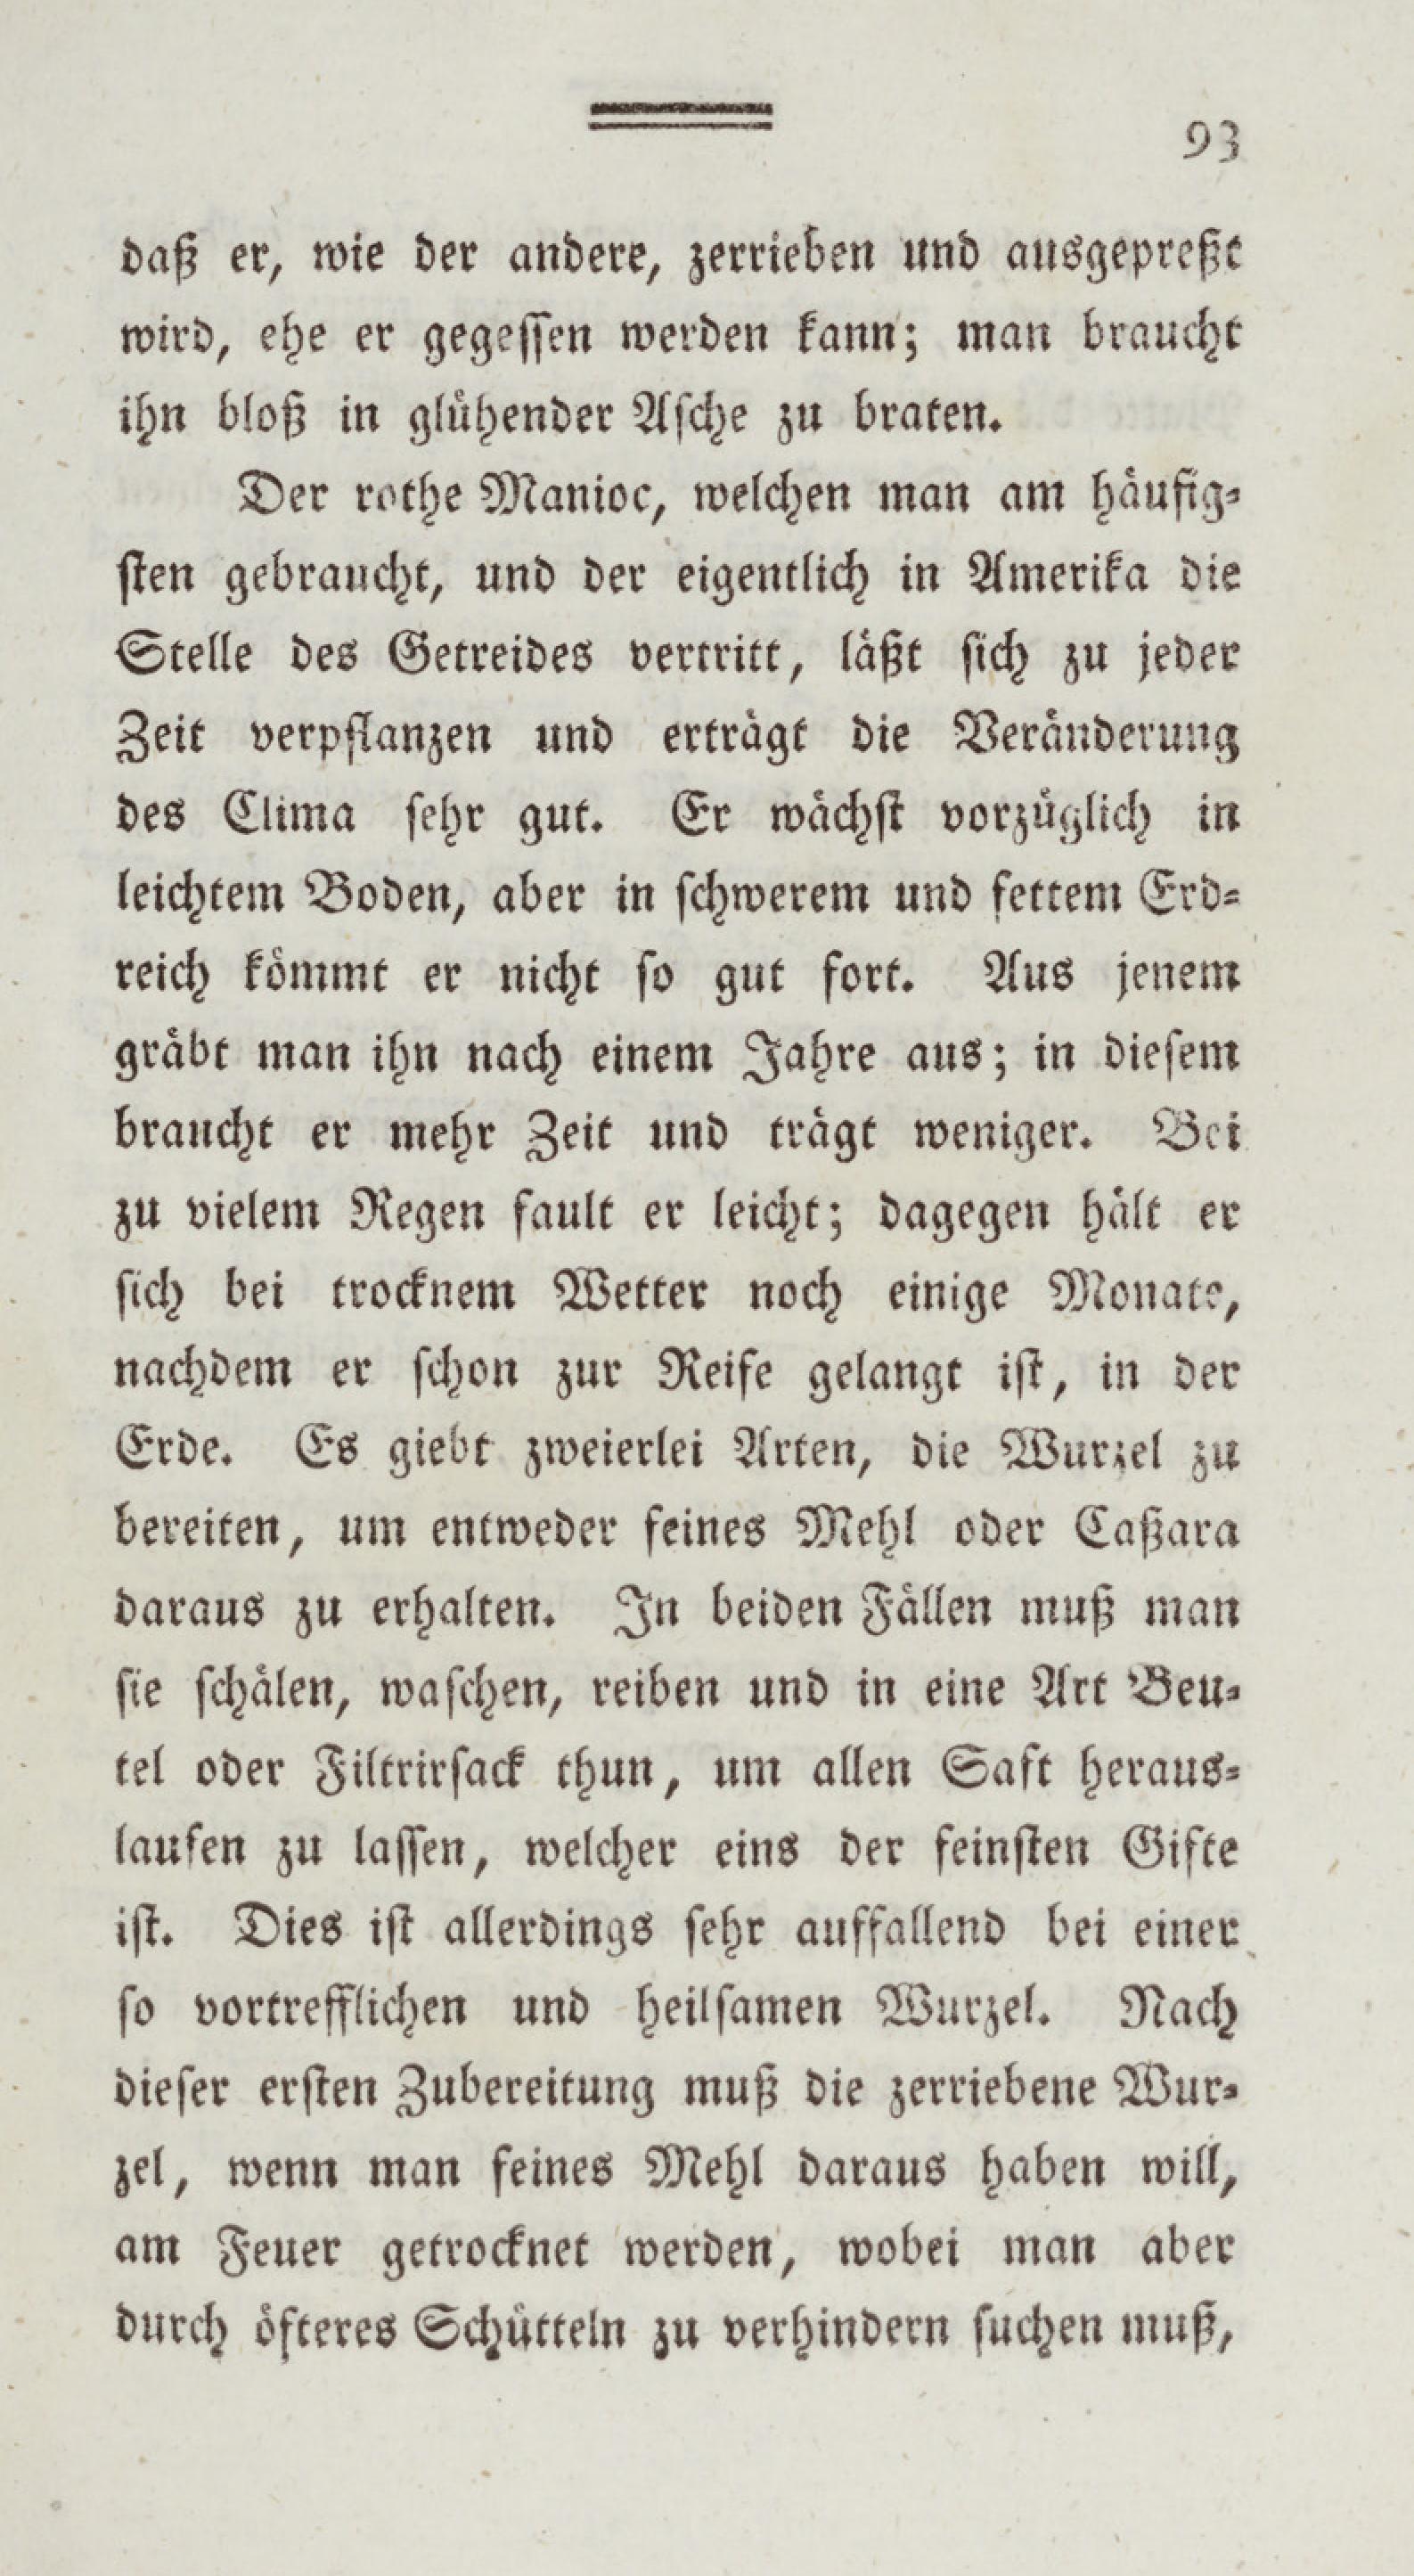 93
daß er, wie der andere, zerrieben und ausgepreßt
wird, ehe er gegessen werden kann; man braucht
ihn bloß in glühender Asche zu braten.
Der rothe Manioc, welchen man am häufig-
sten gebraucht, und der eigentlich in Amerika die
Stelle des Getreides vertritt, läßt sich zu jeder
Zeit verpflanzen und erträgt die Veränderung
des Clima sehr gut. Er wächst vorzüglich in
leichtem Boden, aber in schwerem und fettem Erd-
reich kömmt er nicht so gut fort. Aus jenem
gräbt man ihn nach einem Jahre aus; in diesem
braucht er mehr Zeit und trägt weniger. Bei
zu vielem Regen fault er leicht; dagegen hält er
sich bei trocknem Wetter noch einige Monate,
nachdem er schon zur Reife gelangt ist, in der
Erde. Es giebt zweierlei Arten, die Wurzel zu
bereiten, um entweder feines Mehl oder Caßara
daraus zu erhalten. In beiden Fällen muß man
sie schälen, waschen, reiben und in eine Art Beu-
tel oder Filtrirsack thun, um allen Saft heraus-
laufen zu lassen, welcher eins der feinsten Gifte
ist. Dies ist allerdings sehr auffallend bei einer
so vortrefflichen und heilsamen Wurzel. Nach
dieser ersten Zubereitung muß die zerriebene Wur-
zel, wenn man feines Mehl daraus haben will,
am Feuer getrocknet werden, wobei man aber
durch öfteres Schütteln zu verhindern suchen muß,